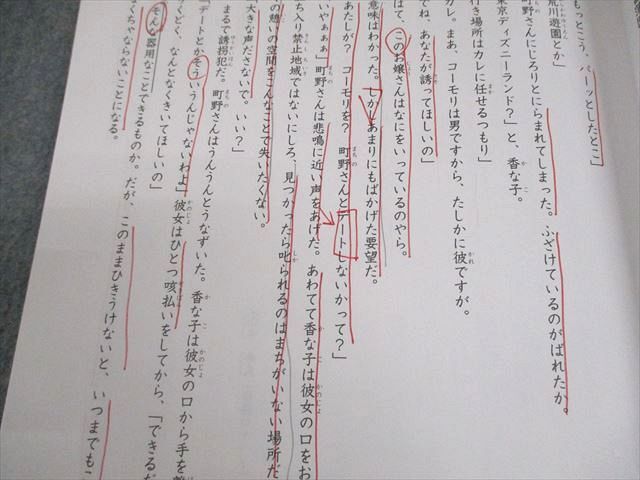 もっとこう、パーッとしたとこ」
荒川遊園とか」
町野さんにじろりとにらまれてしまった。ふざけているのがばれたか。
東京ディズニーランド？」と、香な子。
行き場所はカレに任せるつもり」
カレ。まあ、コーモリは男ですから、たしかに彼ですが。
でね、あなたが誘ってほしいの」
はて、このお嬢さんはなにをいっているのやら。
意味はわかった。しかしあまりにもばかげた要望だ。
あたしが？　コーモリを？　町野さんとデートしないかって？」
いやぁぁぁ」町野さんは悲鳴に近い声をあげた。あわてて香な子は彼女の口をお
ち入り禁止地域ではないにしろ、見つかったら叱られるのはまちがいない場所だ
の憩いの空間をこんなことで失いたくない。
大きな声ださないで。いい？」
まるで誘拐犯だ。町野さんはうんうんとうなずいた。香な子は彼女の口から手を
デートとかそういうんじゃないわよ」彼女はひとつ咳払いをしてから、「できるだ
くどく、なんとなくきいてほしいの」
そんな器用なことできるものか。だが、このままひきうけないと、いつまでも
なくちゃならないことになる。